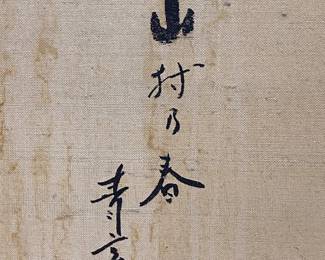 山村乃春
青